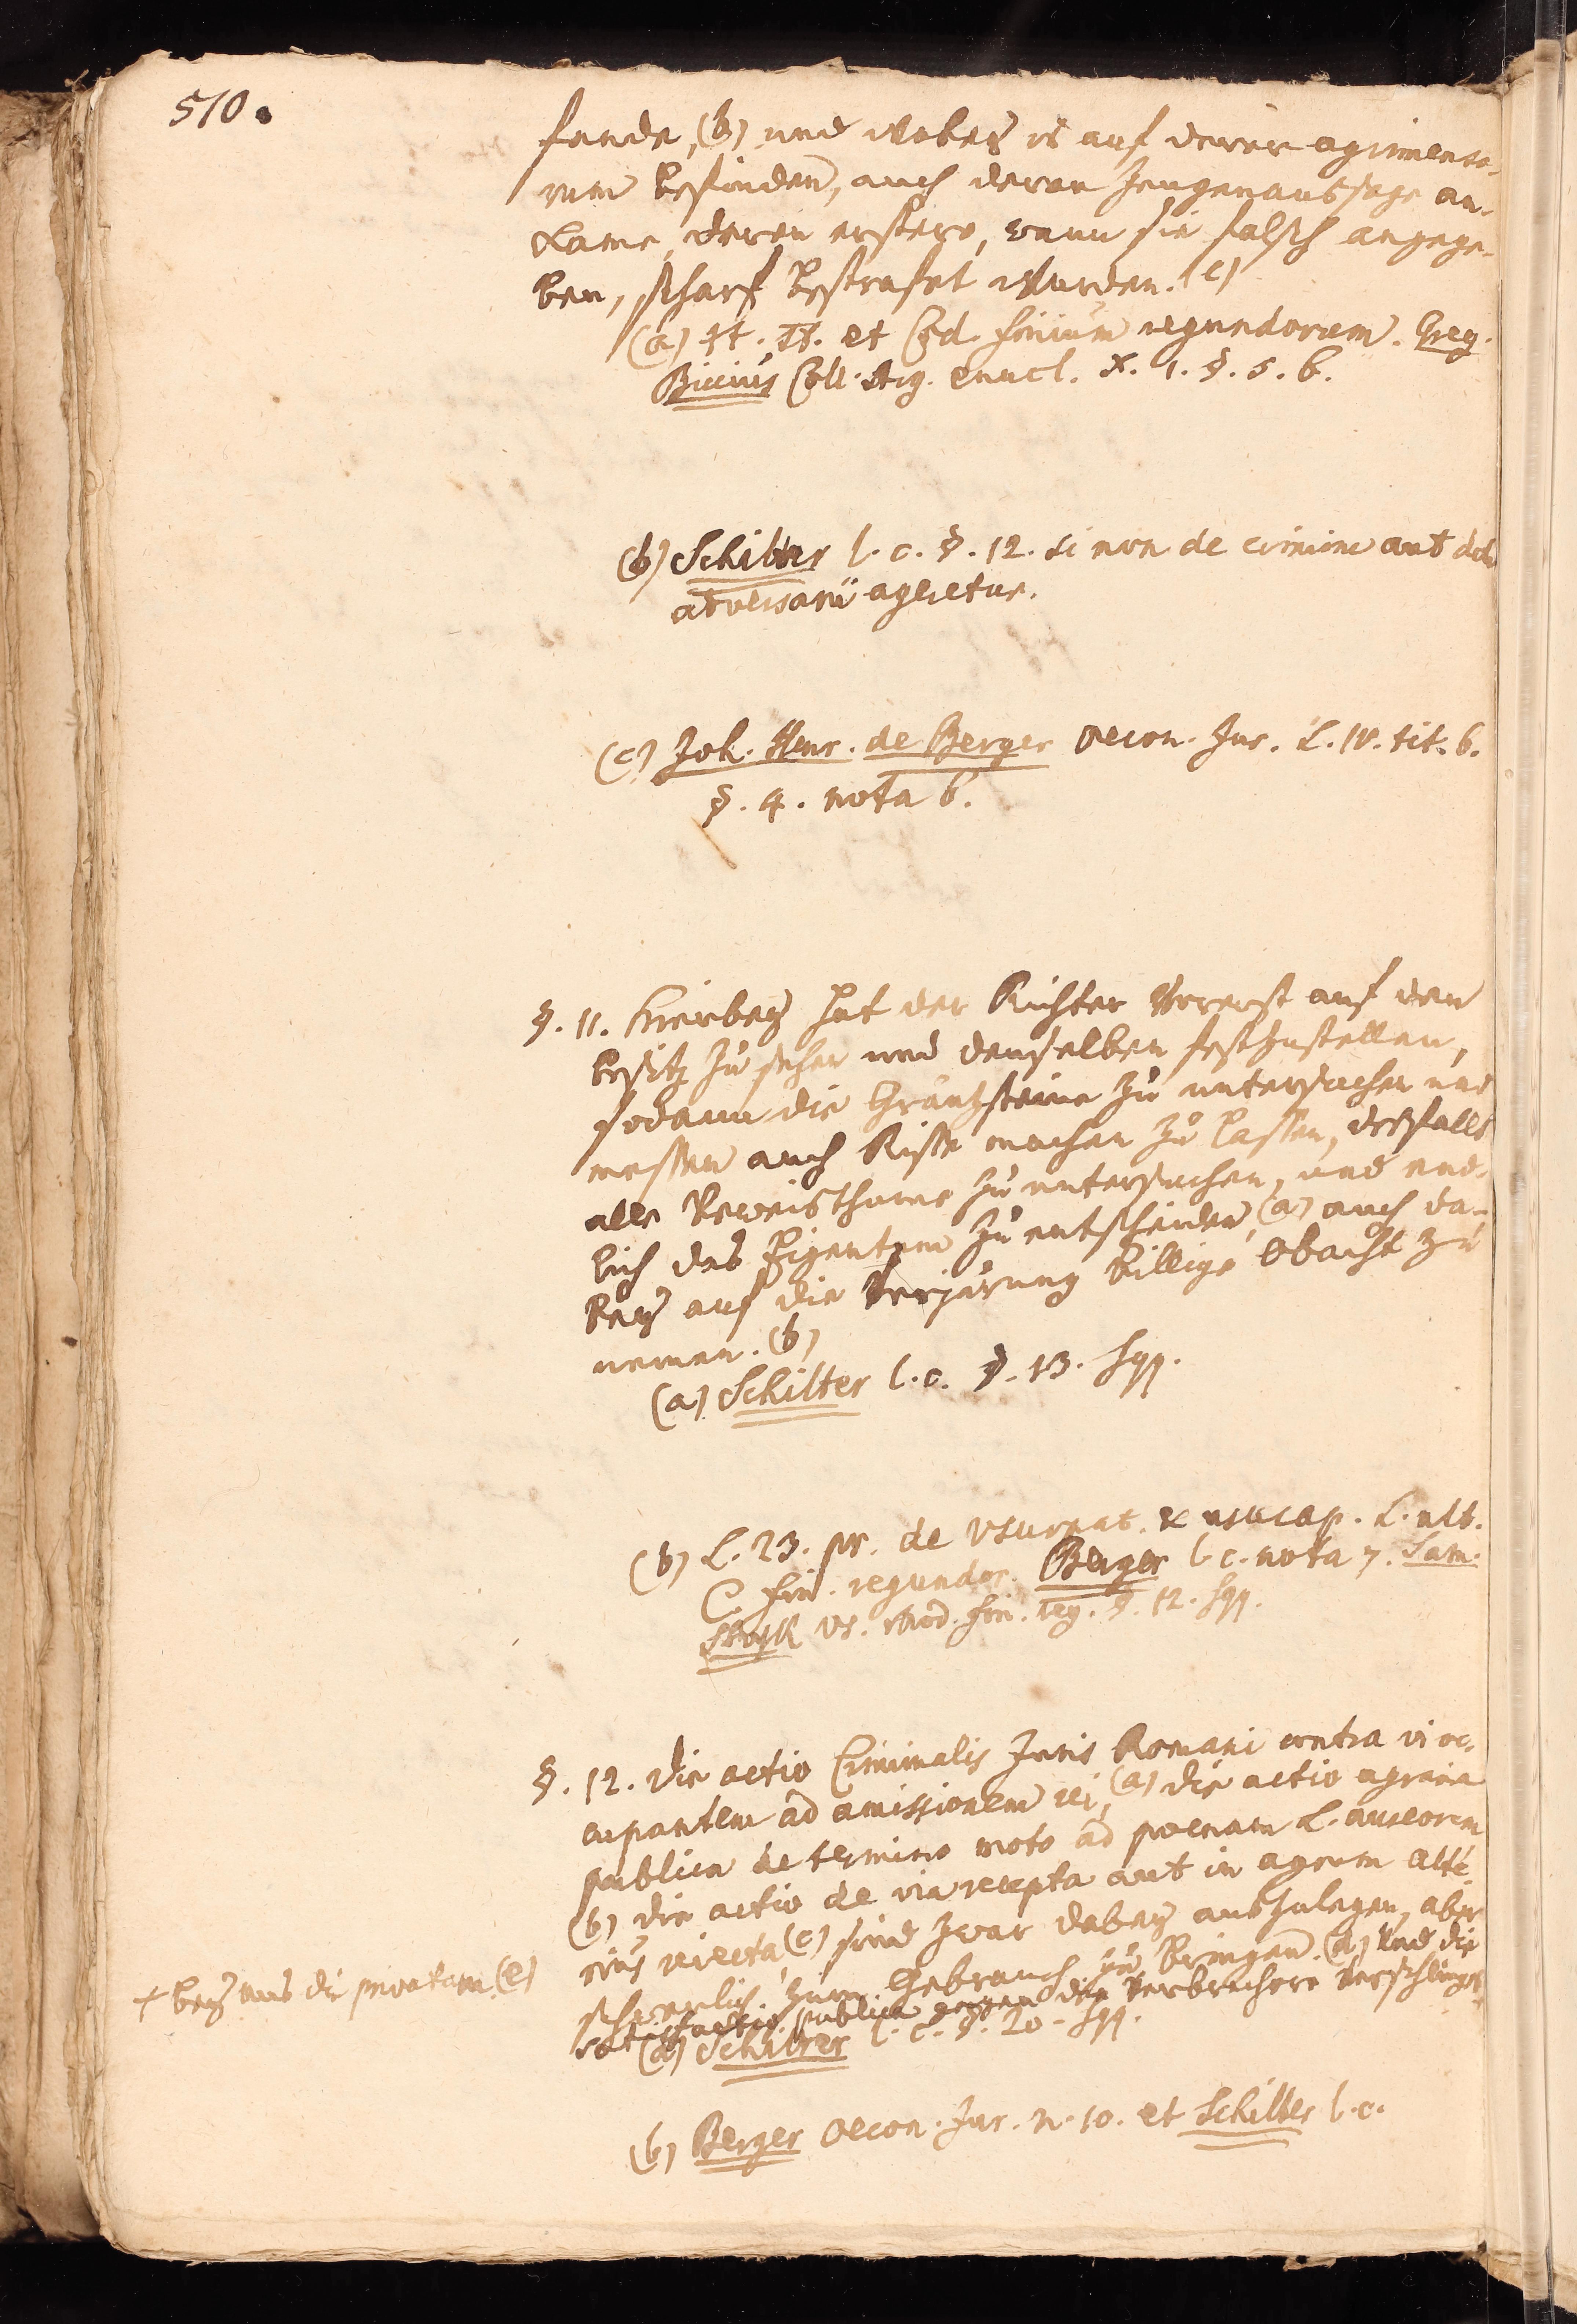 510.
fande, (b) und wobey es auf derer agrimenso-
rum befinden, auch deren Zeugenaussage an-
kame, deren erstere, wann sie falsch angege-
ben, scharf bestrafet wurden. (c)
(a) tt. ff. et Cod. finium regundorum. Greg.
Biccius Coll. Arg. enucl. X. 1. §. 5. 6.
(b) Schilter l. c. §. 12. si non de crimine aut dolo
adversarii ageretur.
(c) Joh. Henr. de Berger Oecon. Jur. L. IV. tit. 6.
§. 4. nota 6.
§. 11. Hierbey hat der Richter vorerst auf den
besitz zu sehen und denselben festzustellen,
sodann die Gräntzsteine zu untersuchen und
messen auch Risse machen zu lassen, desfalls
alle Beweisthume zu untersuchen, und end-
lich das Eigentum zu entscheiden, (a) auch da-
bey auf die Verjärung billige Obacht zu
nemen. (b)
(a) Schilter l. c. §. 13. sqq.
(b) L. 23. pr. de usurpat. & usucap. L. ult.
C. fin. regundor. Berger l. c. nota 7. Sam.
Stryk us. mod. fin. reg. §. 12. sqq.
§. 12. Die actio Criminalis Juris Romani contra vi oc-
cupantem ad amissionem rei, (a) die actio agraria
publica de termino moto ad poenam L. aureorum
(b) die actio de via recepta aut in agrum alte-
rius reiecta (c) sind zwar dabey auszulegen, aber
schwerlich zum Gebrauch zu bringen. (d) Und die
satisfactio publica gegen die Verbrechere verschlinget
+ bey uns die privatam. (e)
(a) Schilter l. c. §. 20. sqq.
(b) Berger Oecon. Jur. n. 10. et Schilter l. c.